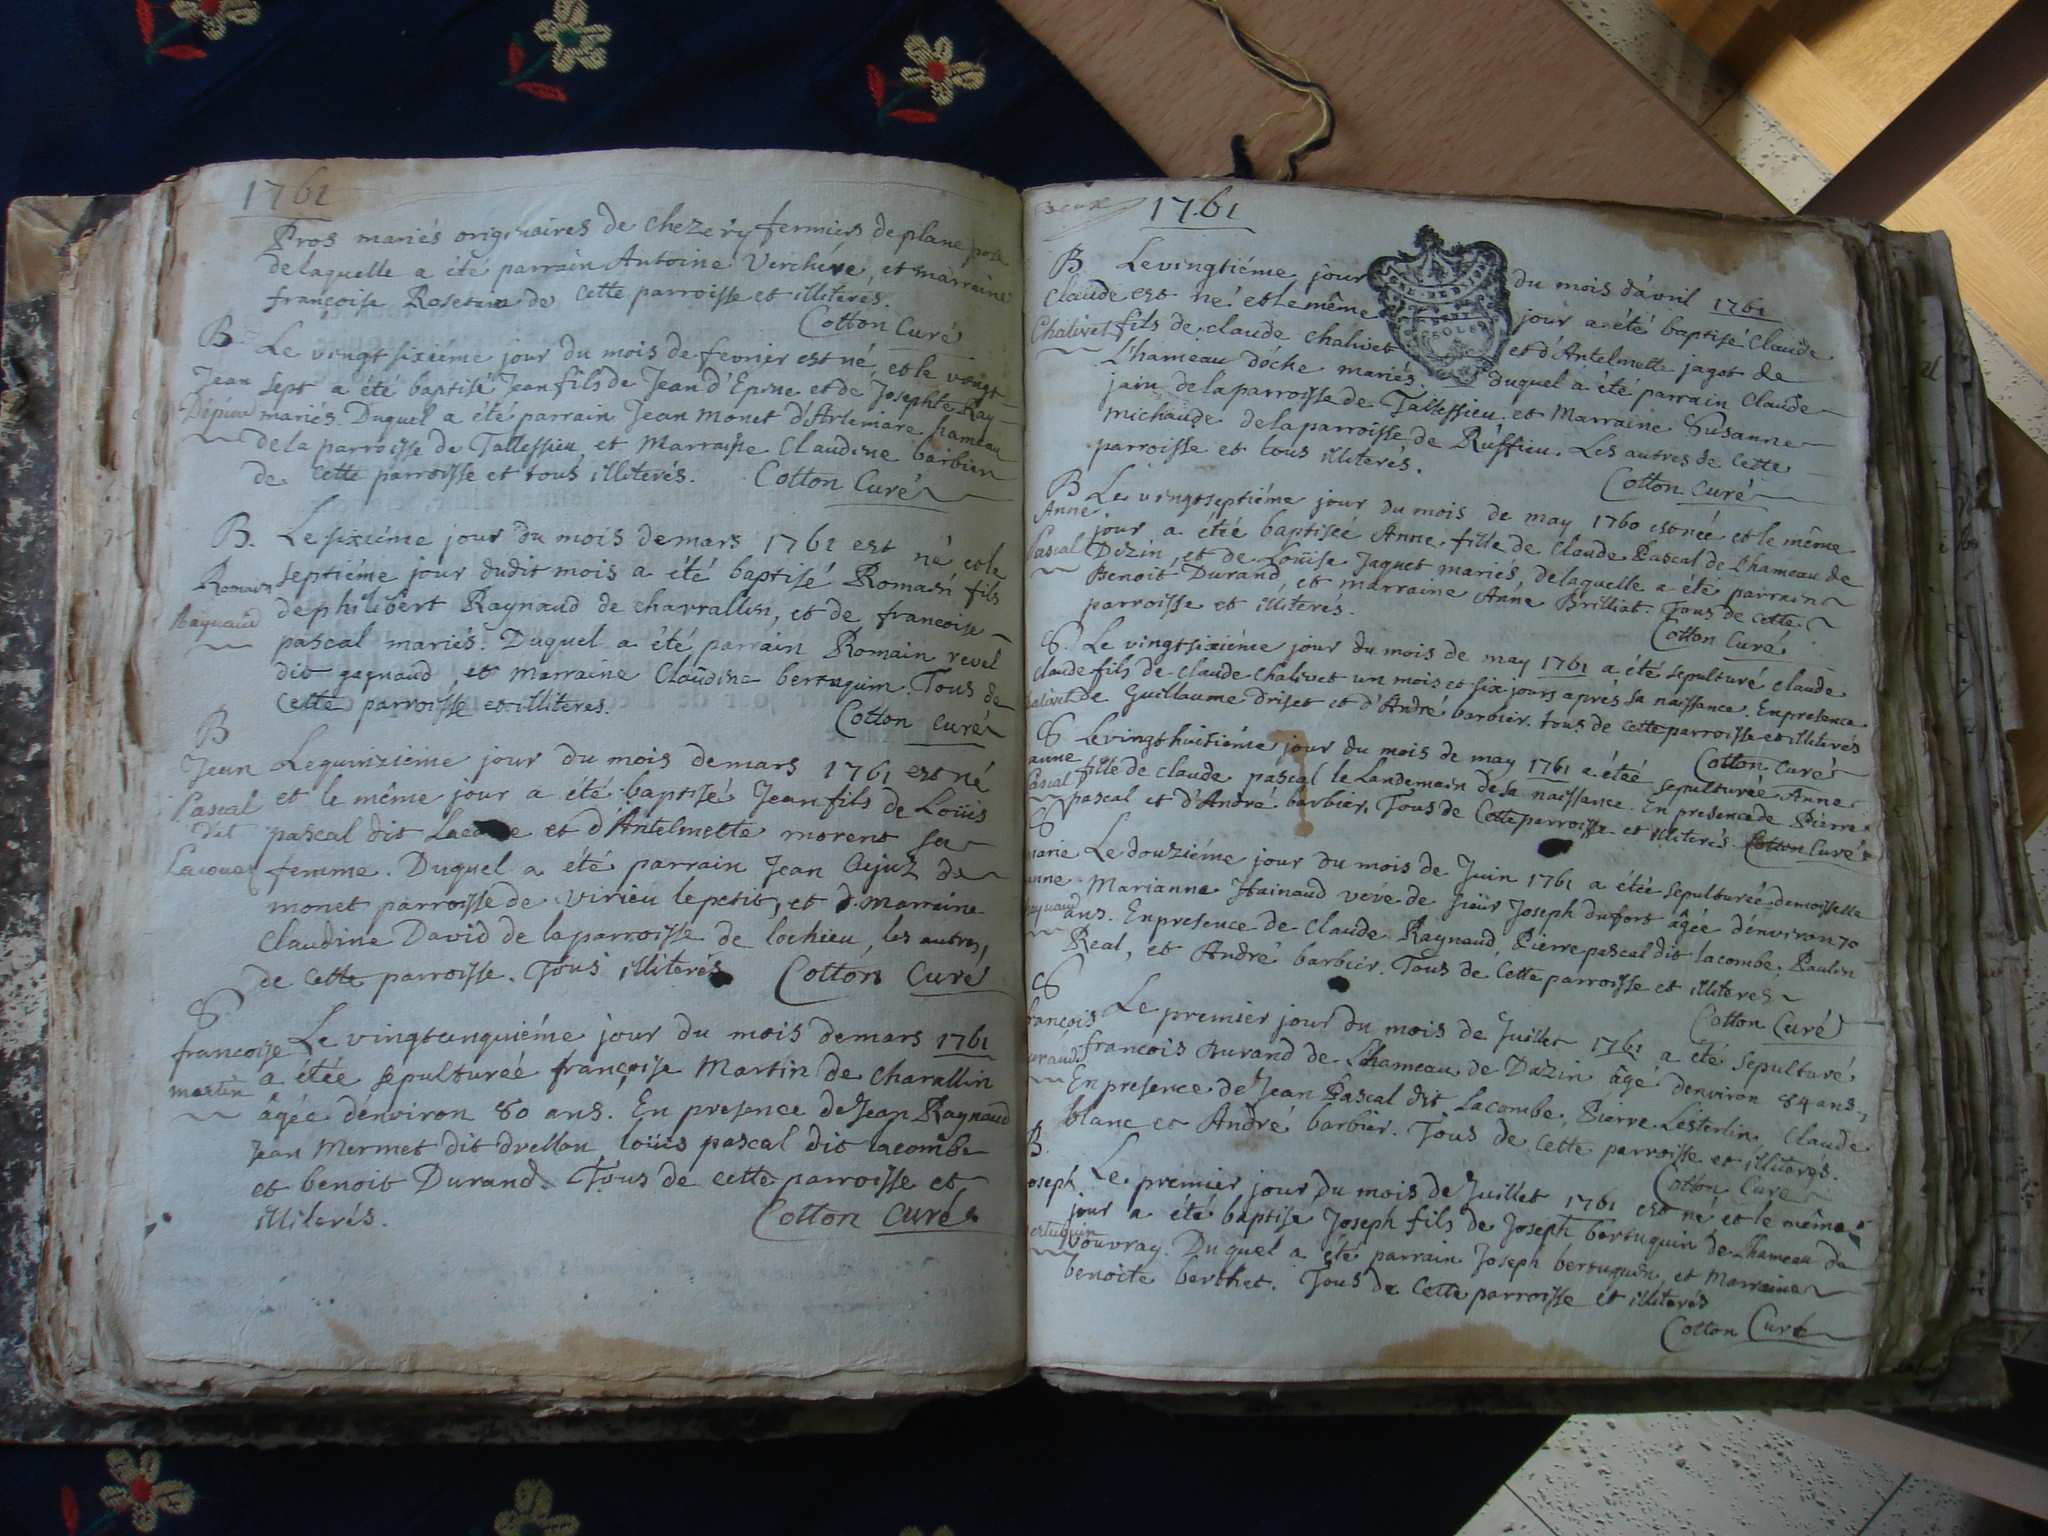 1761
Pros mariés originaires de chezery fermiers de plane
de laquelle a été parrain Antoine Verchére, et marraine
françoise Rosetan de cette parroisse et illiterés.
Cotton Curé
B Le vingt sixiéme jour du mois de fevrier est né, et le vengt
Jean sept a été baptisé Jean fils de Jean d'Epine et de Josephte Ray
mariés. Duquel a été parrain Jean monet d'Artemare hameau
de la parroisse de Tallessieu, et Marraine Claudine barbier
de cette parroisse et tous illiterés. Cotton Curé
B. Le sixiéme jour du mois de mars 1761 est né et le
Romain septiéme jour dudit mois a été baptisé Romain fils
Raynaud de philibert Raynaud de charallin, et de francoise
pascal mariés. Duquel a été parrain Romain revel
dit gagnaud, et Marraine Claudine bertuquin. Tous de
cette parroisse et illiteres. Cotton Curé
B
Jean Le quinziéme jour du mois de mars 1761 est né
Pascal et le même jour a été baptisé Jean fils de Loüis
dit pascal dit et d'Antelmette morent sa
femme. Duquel a été parrain Jean Cujuz de
monet parroisse de virieu le petit, et Marraine
Claudine David de la parroisse de lochieu, les autres,
de cette parroisse. Tous illiterés Cotton Curé
S.
francoise Le vingtcinquiéme jour du mois de mars 1761
martin a étée sepulturéé françoise Martin de charallin
âgée d'énviron 80 ans. En presence de Jean Raynaud
Jean Mermet dit drellon loüis pascal dit lacombe
et benoit Durand. Tous de cette parroisse et
illiterés. Cotton Curé
1761
B Le vingtiéme jour du mois d'avril 1761
Claude est né et le même jour a été baptisé Claude
Chalivet fils de claude chalivet et d'Antelmette jagot de
L'hameau d'oche mariés. Duquel a été parrain Claude
jain de la parroisse de Tallessieu et Marraine Susanne
michaude de la parroisse de Ruffieu. Les autres de cette
parroisse et tous illiterés. Cotton Curé
B Le vingtseptiéme jour du mois de may 1760 est née et le même
Anne jour a étéé baptiséé Anne fille de Claude Pascal de L'hameau de
Pascal Dizin, et de Loüise Jaquet mariés, de laquelle a été parrain
Benoit Durand, et marraine Anne Brilliat. Tous de cette
parroisse et illiterés. Cotton Curé
S. Le vingtsixiéme jour du mois de may 1761 a été sepulturé claude
claude fils de claude Chalivet un mois et six jours apres sa naissance. En presence
de Guillaume Driset et d'André barbier. tous de cette parroisse et illiterés
Cotton Curé
S Le vingthuitiéme jour du mois de may 1761 a étéé sepulturéé Anne
anne fille de claude pascal le landemain de sa naissance. En presence de Pierre
Pascal pascal et d'André barbier. Tous de cette parroisse et illiterés. Cotton Curé
S
marie Le douziéme jour du mois de Juin 1761 a étéé sepulturéé demoiselle
anne Marianne Hainaud veve de sieur Joseph dufort âgéé d'énviron 70
ans. En presence de Claude Raynaud, Pierre pascal dit lacombe, Paulin
Real, et André barbier. Tous de cette parroisse et illiteres
Cotton Curé
S
françois Le premier jour du mois de Juillet 1761 a été sepulturé
francois Durand de L'hameau de Dazin âgé denviron 84 ans,
En presence de Jean Pascal dit Lacombe, Pierre Lesterlin, Claude
blanc et André barbier. Tous de cette parroisse et illiterés.
Cotton Curé
B.
Joseph Le premier jour du mois de Juillet 1761 est né et le même
jour a été baptisé Joseph fils de Joseph bertuquin de L'hameau de
vouvray. Duquel a été parrain Joseph bertuquin, et Marraine
benoite berthet. Tous de cette parroisse et illiterés
Cotton Curé